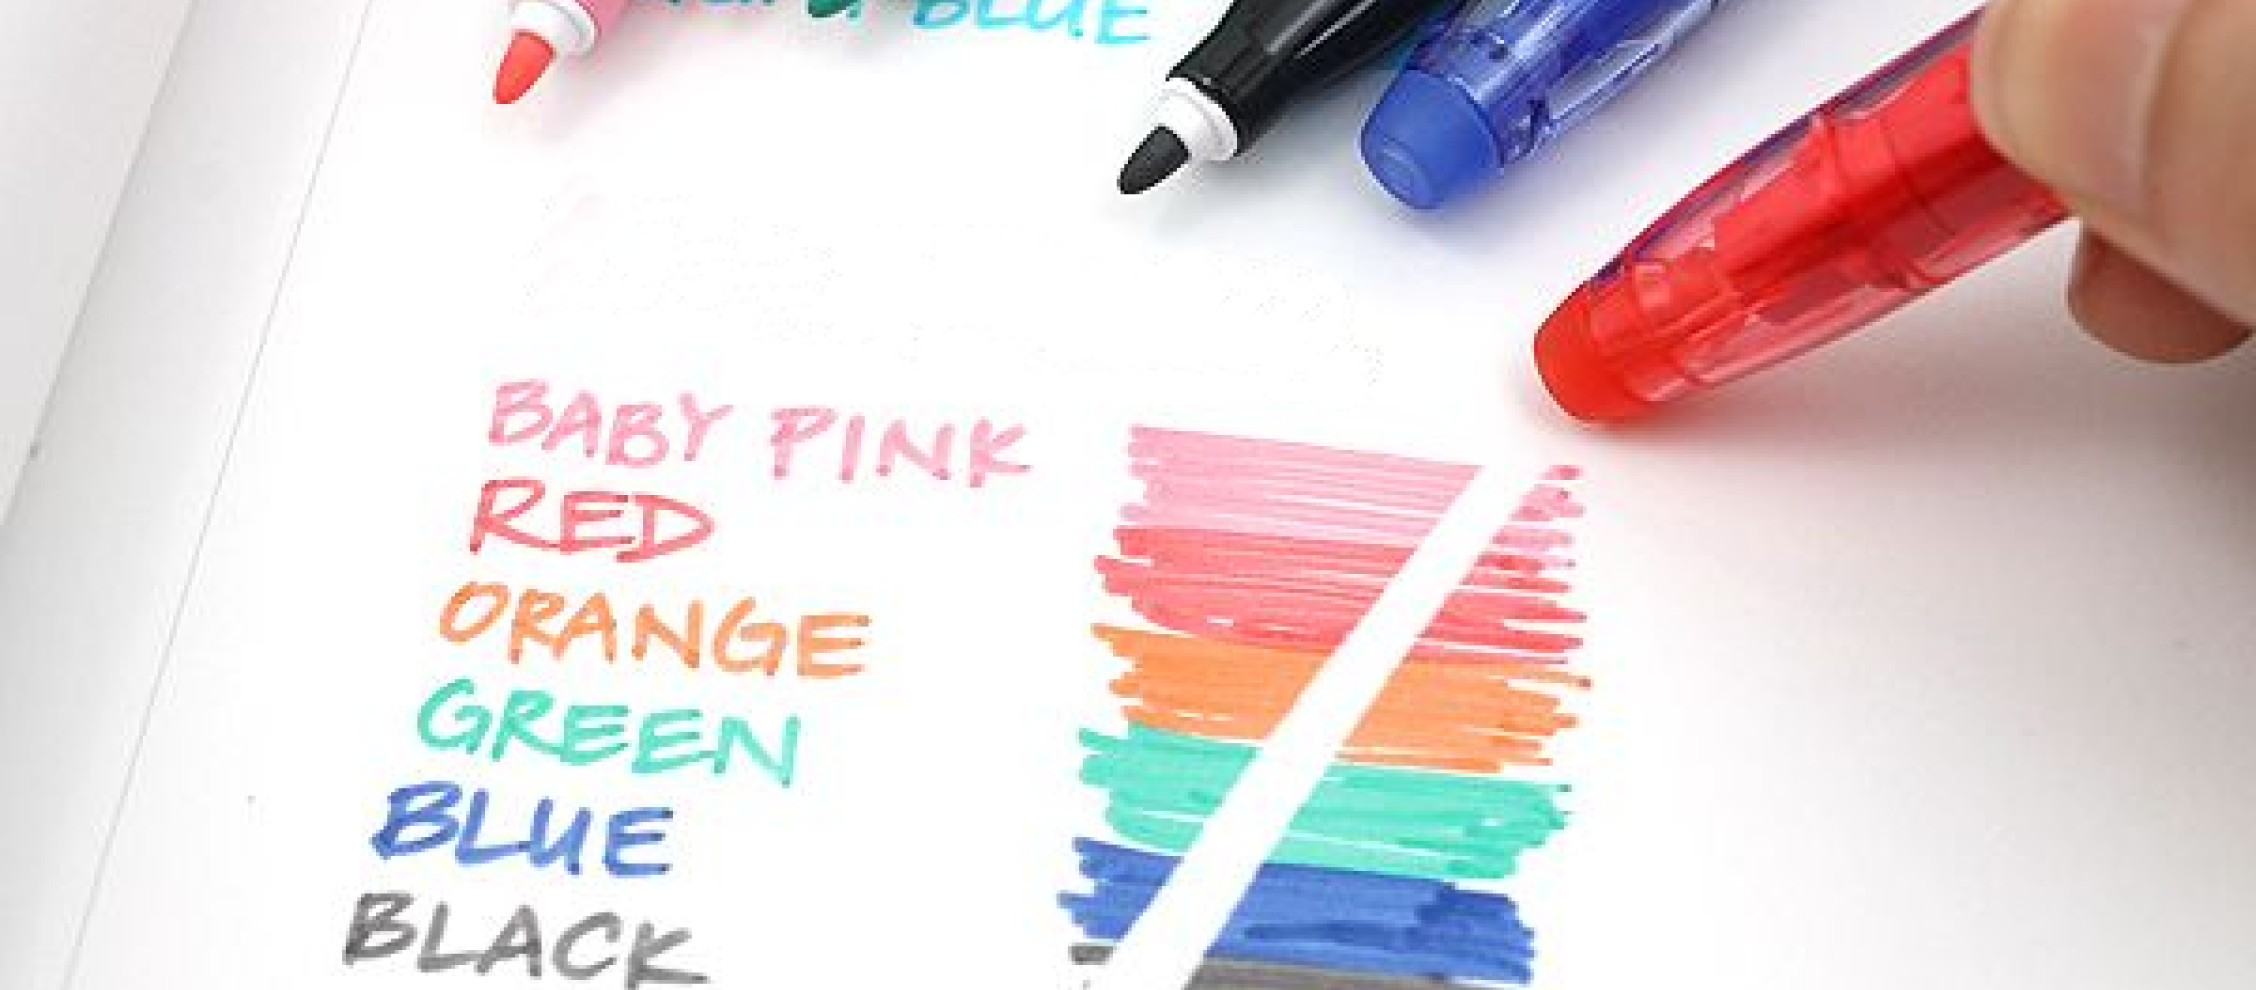 BLUE
BABY PINK
RED
ORANGE
GREEN
BLUE
BLACK